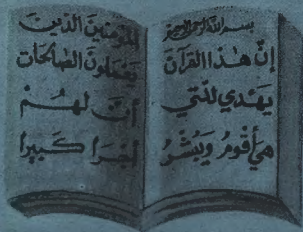 بسم الله الرحمن الرحيم
إنّ هٰذا القرآن
يهدي للّتي
هي أقوم ويبشّر
المؤمنين الّذين
يعملون الصّالحات
أنّ لهم
أجرا كبيرا